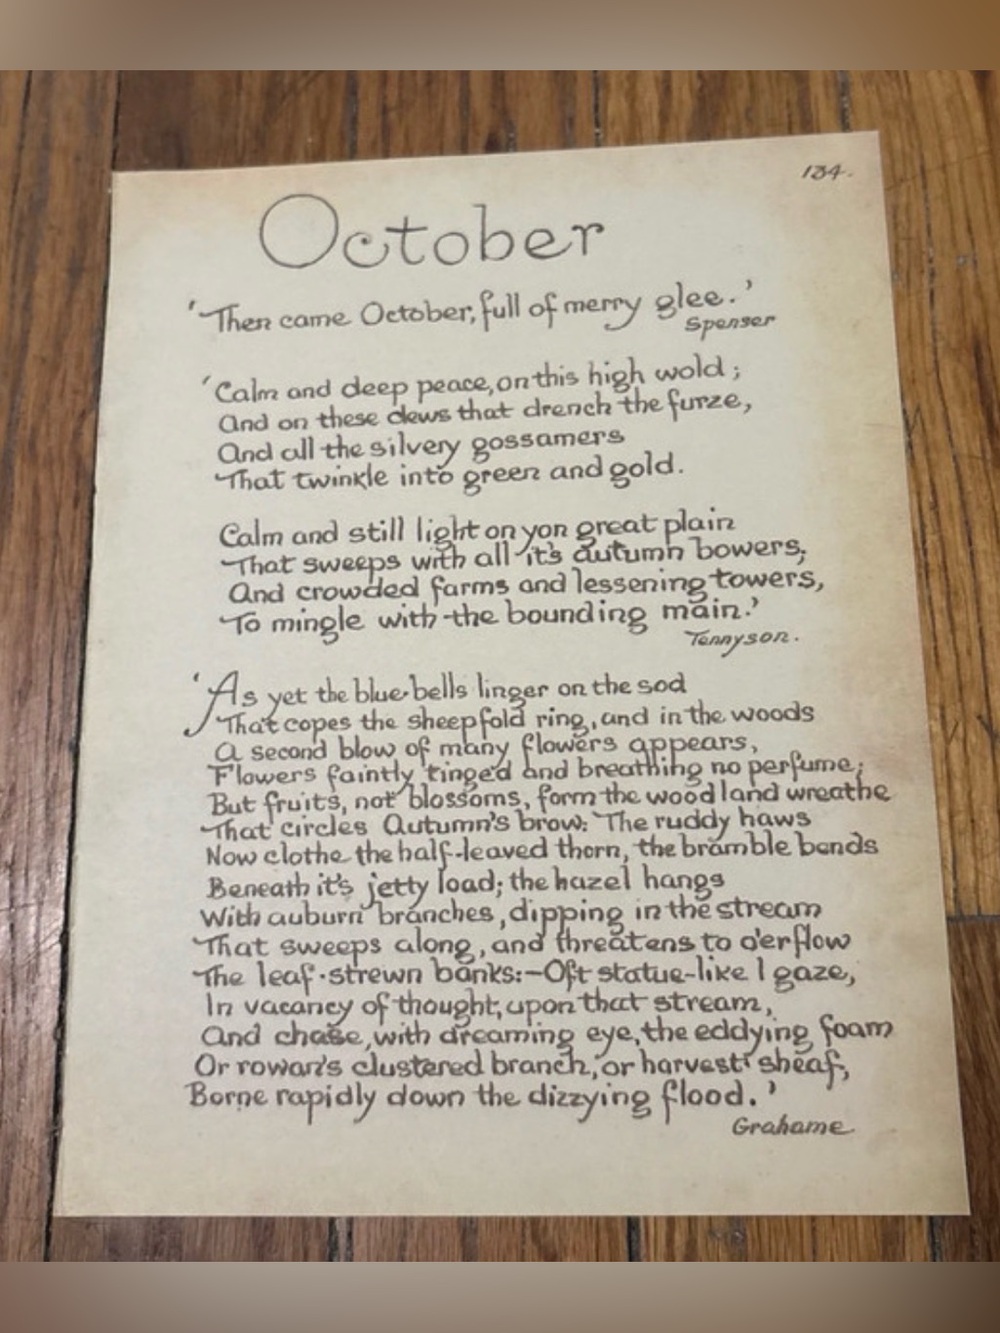 134.
October
'Then came October, full of merry glee.'
Spenser
'Calm and deep peace, on this high wold;
And on these dews that drench the furze,
And all the silvery gossamers
That twinkle into green and gold.
Calm and still light on yon great plain
That sweeps with all it's autumn bowers,
And crowded farms and lessening towers,
To mingle with the bounding main.'
Tennyson.
'As yet the blue-bells linger on the sod
That copes the sheepfold ring, and in the woods
A second blow of many flowers appears,
Flowers faintly tinged and breathing no perfume;
But fruits, not blossoms, form the woodland wreathe
That circles Autumn's brow: The ruddy haws
Now clothe the half-leaved thorn, the bramble bends
Beneath it's jetty load; the hazel hangs
With auburn branches, dipping in the stream
That sweeps along, and threatens to o'erflow
The leaf-strewn banks:- Oft statue-like I gaze,
In vacancy of thought, upon that stream,
And chase, with dreaming eye, the eddying foam
Or rowan's clustered branch, or harvest sheaf,
Borne rapidly down the dizzying flood.'
Grahame